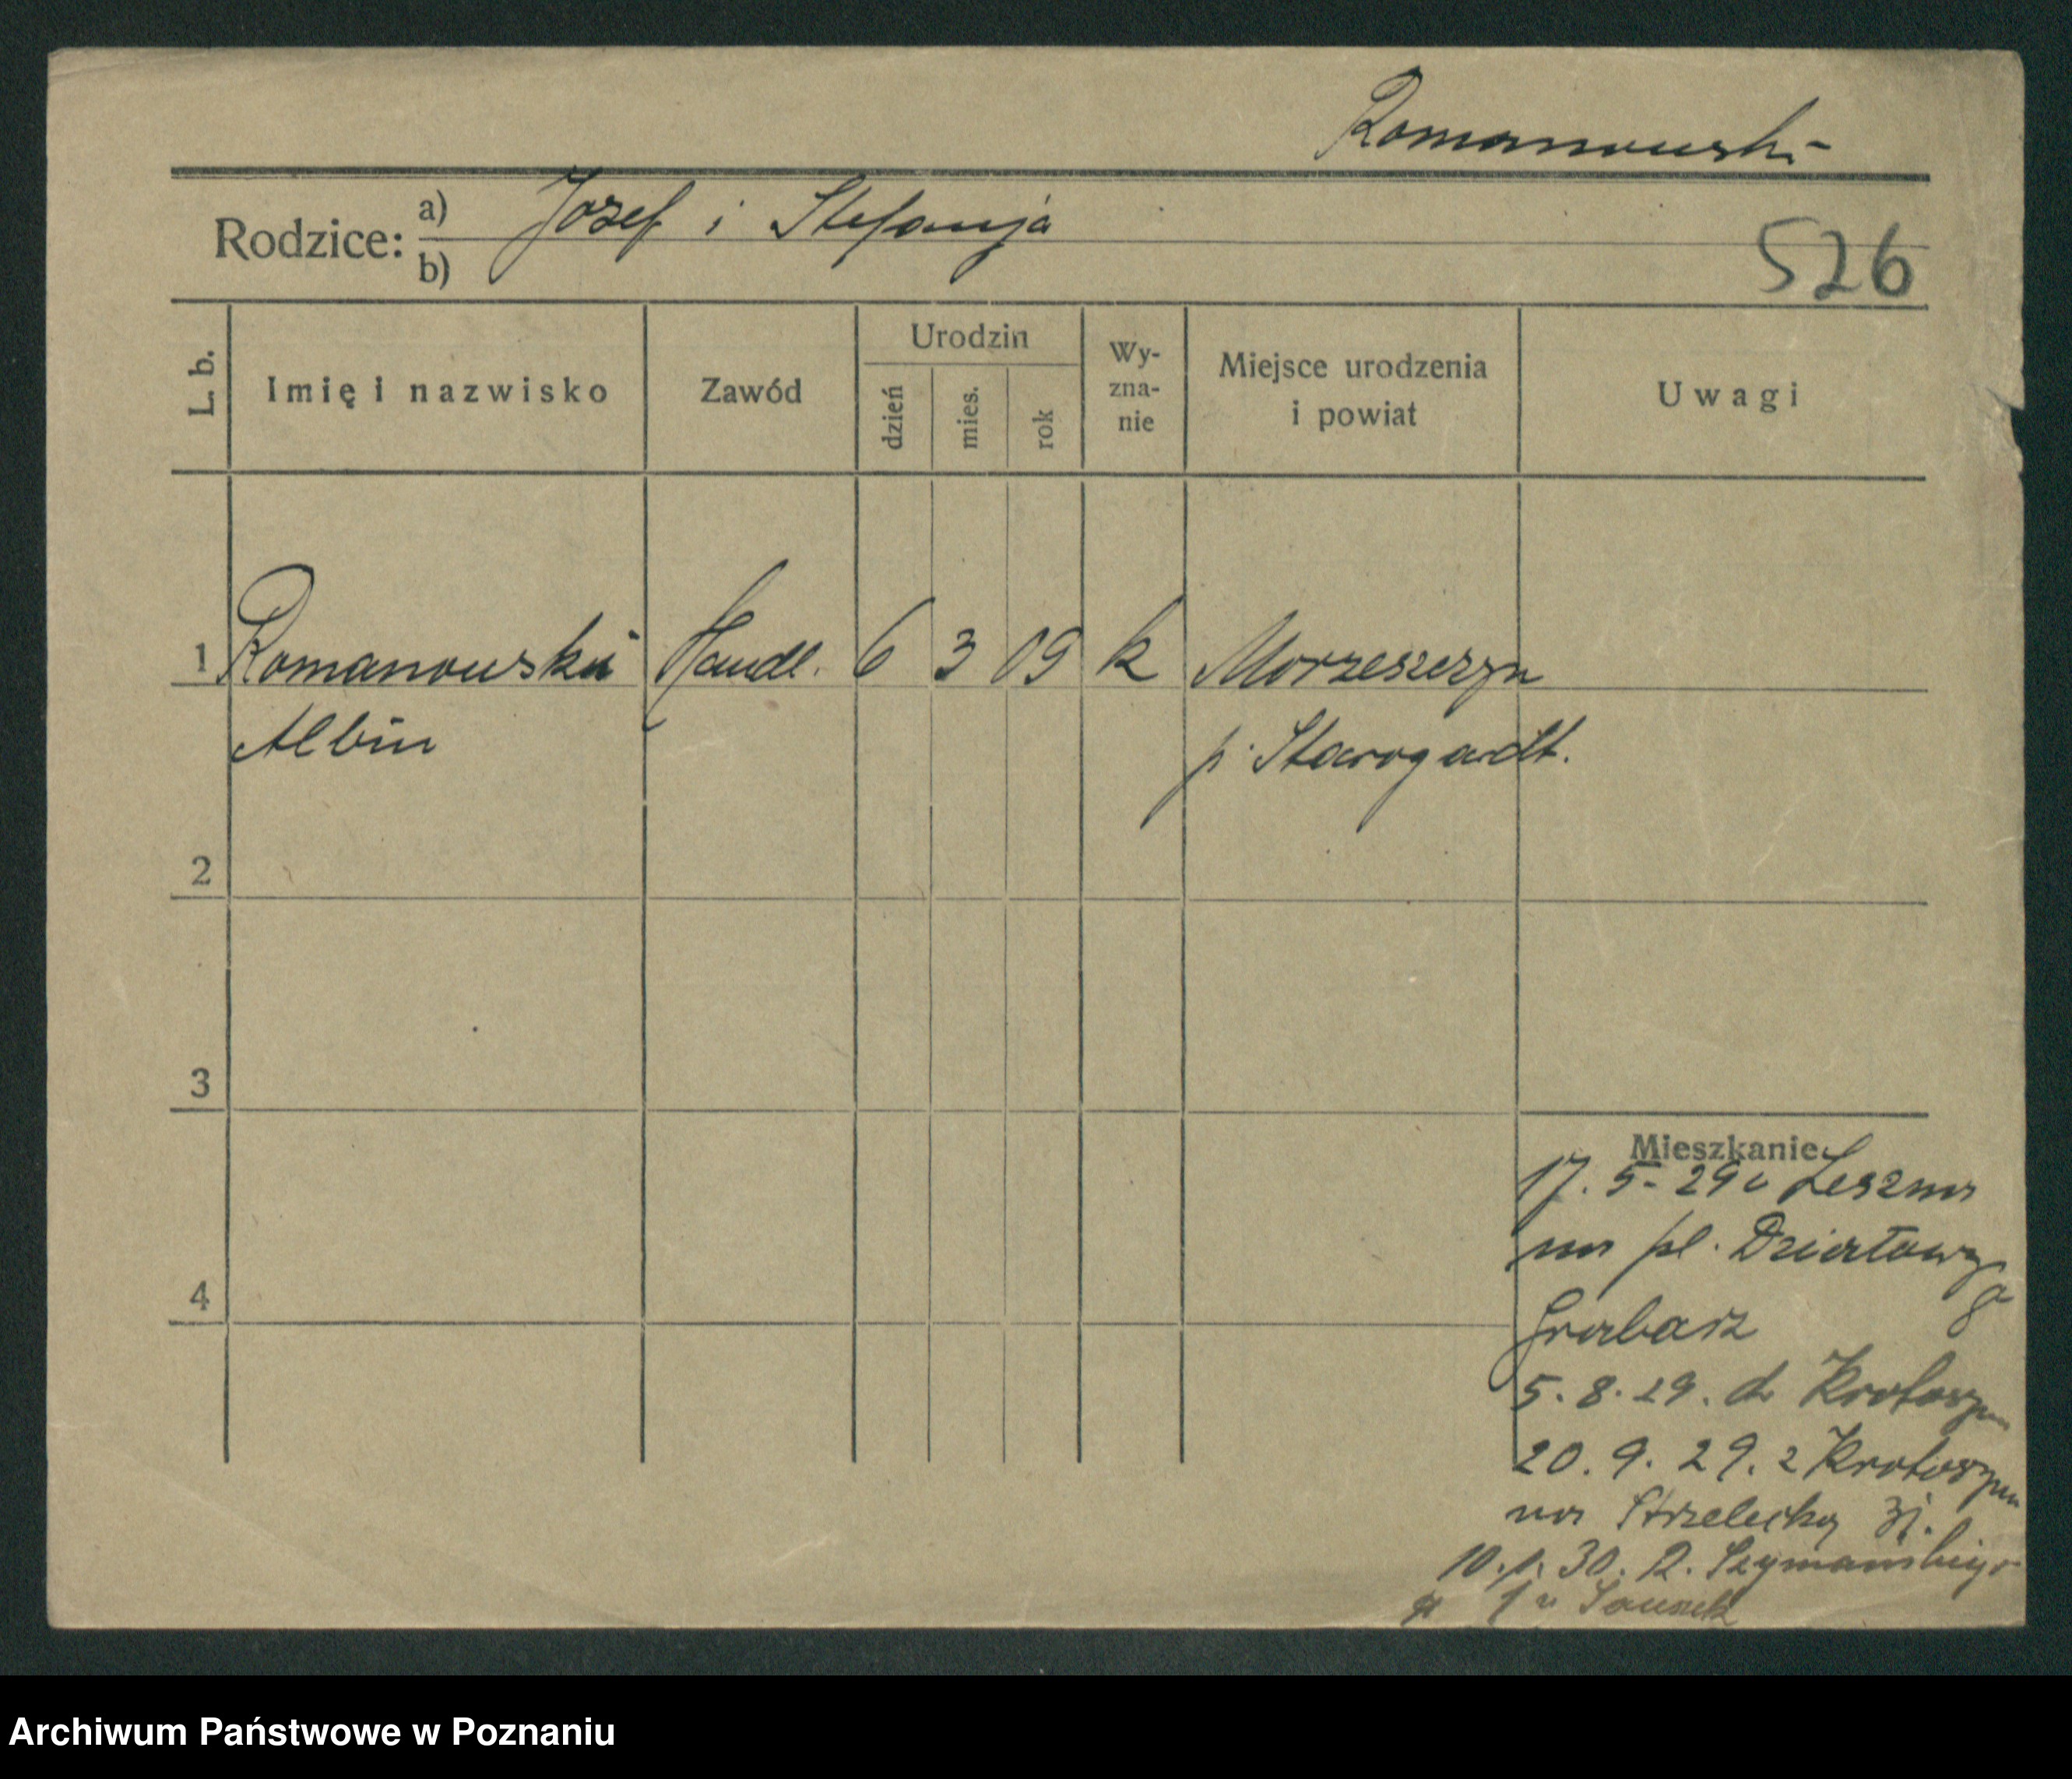 Romanowski
Rodzice: a) Jozef i Stefanja
b)
526
L. b.
Imię i nazwisko
Zawód
Urodzin
dzień
mies.
rok
Wy-
zna-
nie
Miejsce urodzenia
i powiat
Uwagi
1 Romanowski Handl. 6 3 09 k Morzeszczyn
Albin p. Starogardt.
2
3
4
Mieszkanie
17. 5. 29 Leszna
na pl. Działowy
Grabarz
5. 8. 29. do Krotoszyn
20. 9. 29. z Krotoszyn
na Strzelecką 31.
10. 1. 30. R. Szymańskiego
1
Archiwum Państwowe w Poznaniu